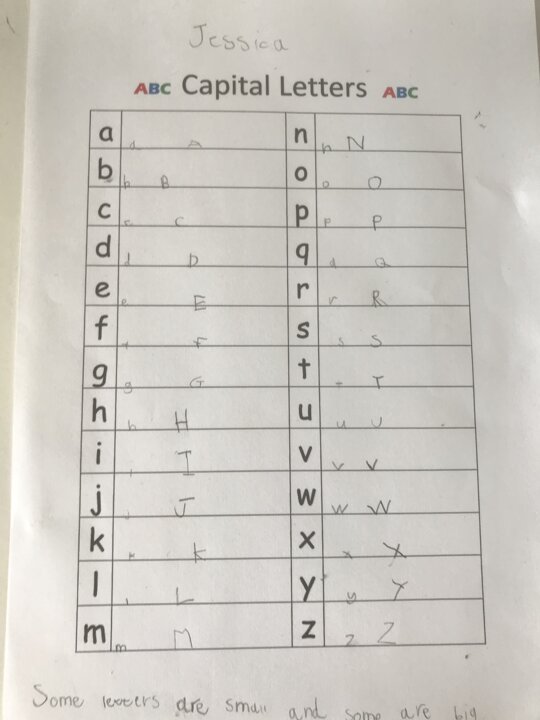 Jessica
ABC Capital Letters ABC
a a A n n N
b b B o o O
c c C p p P
d d D q q Q
e e E r r R
f f F s s S
g g G t t T
h h H u u U
i i I v v V
j j J w w W
k k K x x X
l l L y y Y
m m M z z Z
Some letters are small and some are big